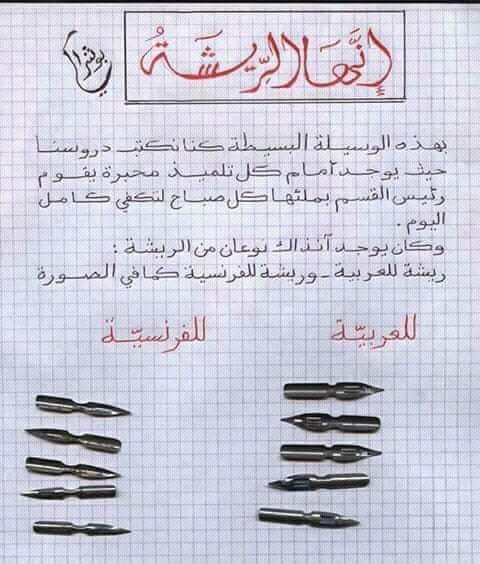 إنَّهَا الرِّيشَةُ
بهذه الوسيلة البسيطة كنا نكتب دروسنا
حيث يوجد أمام كل تلميذ محبرة يقوم
رئيس القسم بملئها كل صباح لتكفي كامل
اليوم.
وكان يوجد آنذاك نوعان من الريشة :
ريشة للعربية - وريشة للفرنسية كما في الصورة
للعربيّة
للفرنسيّة